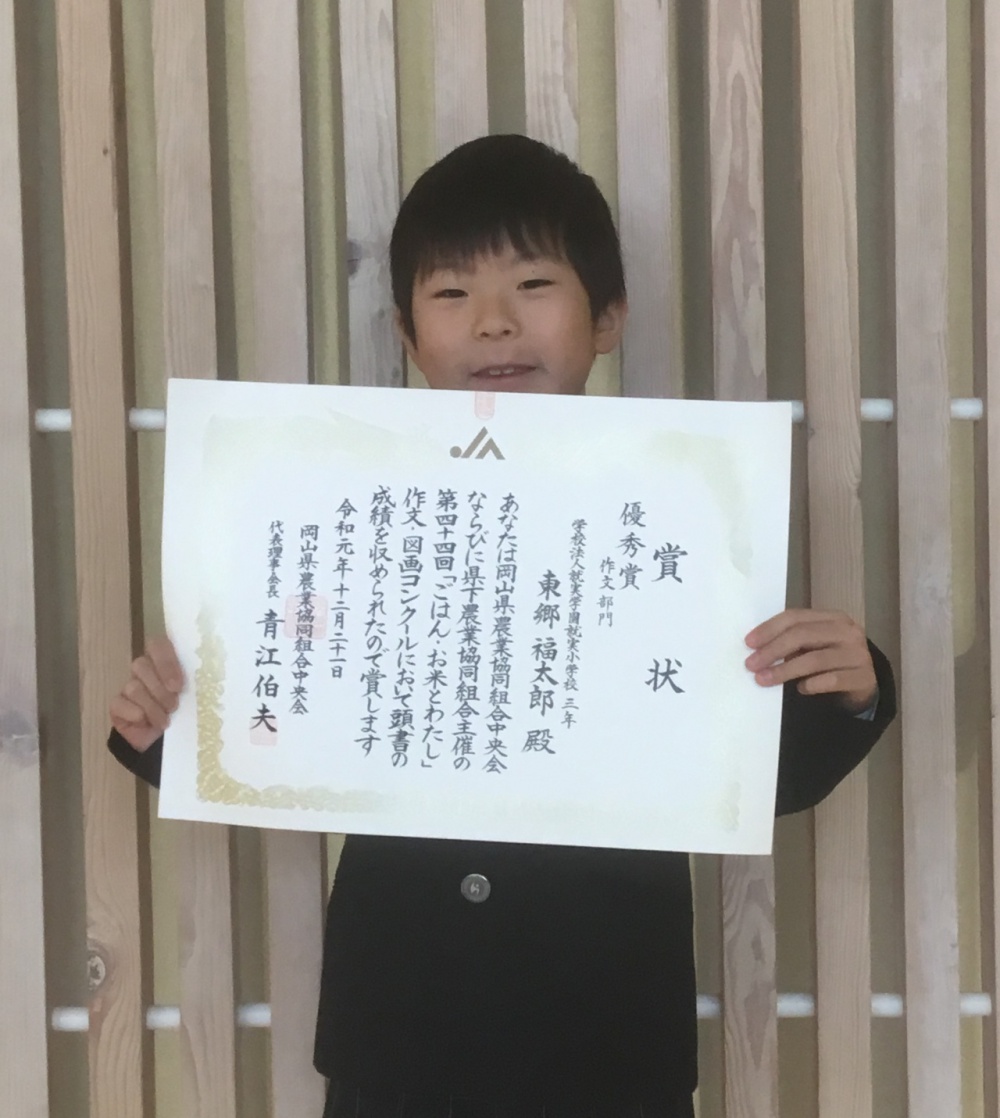 賞状
優秀賞
作文部門
学校法人就実学園就実小学校 三年
東郷福太郎 殿
あなたは岡山県農業協同組合中央会
ならびに県下農業協同組合主催の
第四十四回「ごはん・お米とわたし」
作文・図画コンクールにおいて頭書の
成績を収められたので賞します
令和元年十二月二十一日
岡山県農業協同組合中央会
代表理事会長 青江伯夫